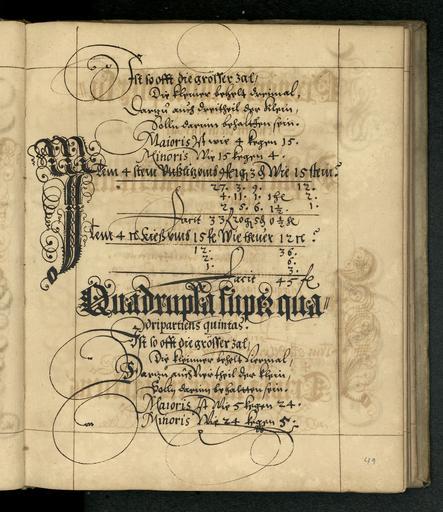 Ist so offt die grösser zal,
Die kleiner behelt dreimal,
Darzu auch dreitheil der klein,
Solln darum behalten sein.
Maioris Ist wie 4 kegen 15.
Minoris Wie 15 kegen 4.
Item 4 stein Wie 15 stein?
27. 3. 9. 12.
4. 11. 1. 2.
2. 5. 6. 1.
Facit
Item 4 Wie theuer 12
12. 36.
2. 6.
1. 3.
Facit 45
Quadrupla super qua„
dripartiens quintas.
Ist so offt die grösser zal,
Die kleinner behelt viermal,
Darzu auch vier theil der klein,
Solln darum behaltten sein.
Maioris Ist Wie 5 kegen 24.
Minoris Wie 24 kegen 5.
49